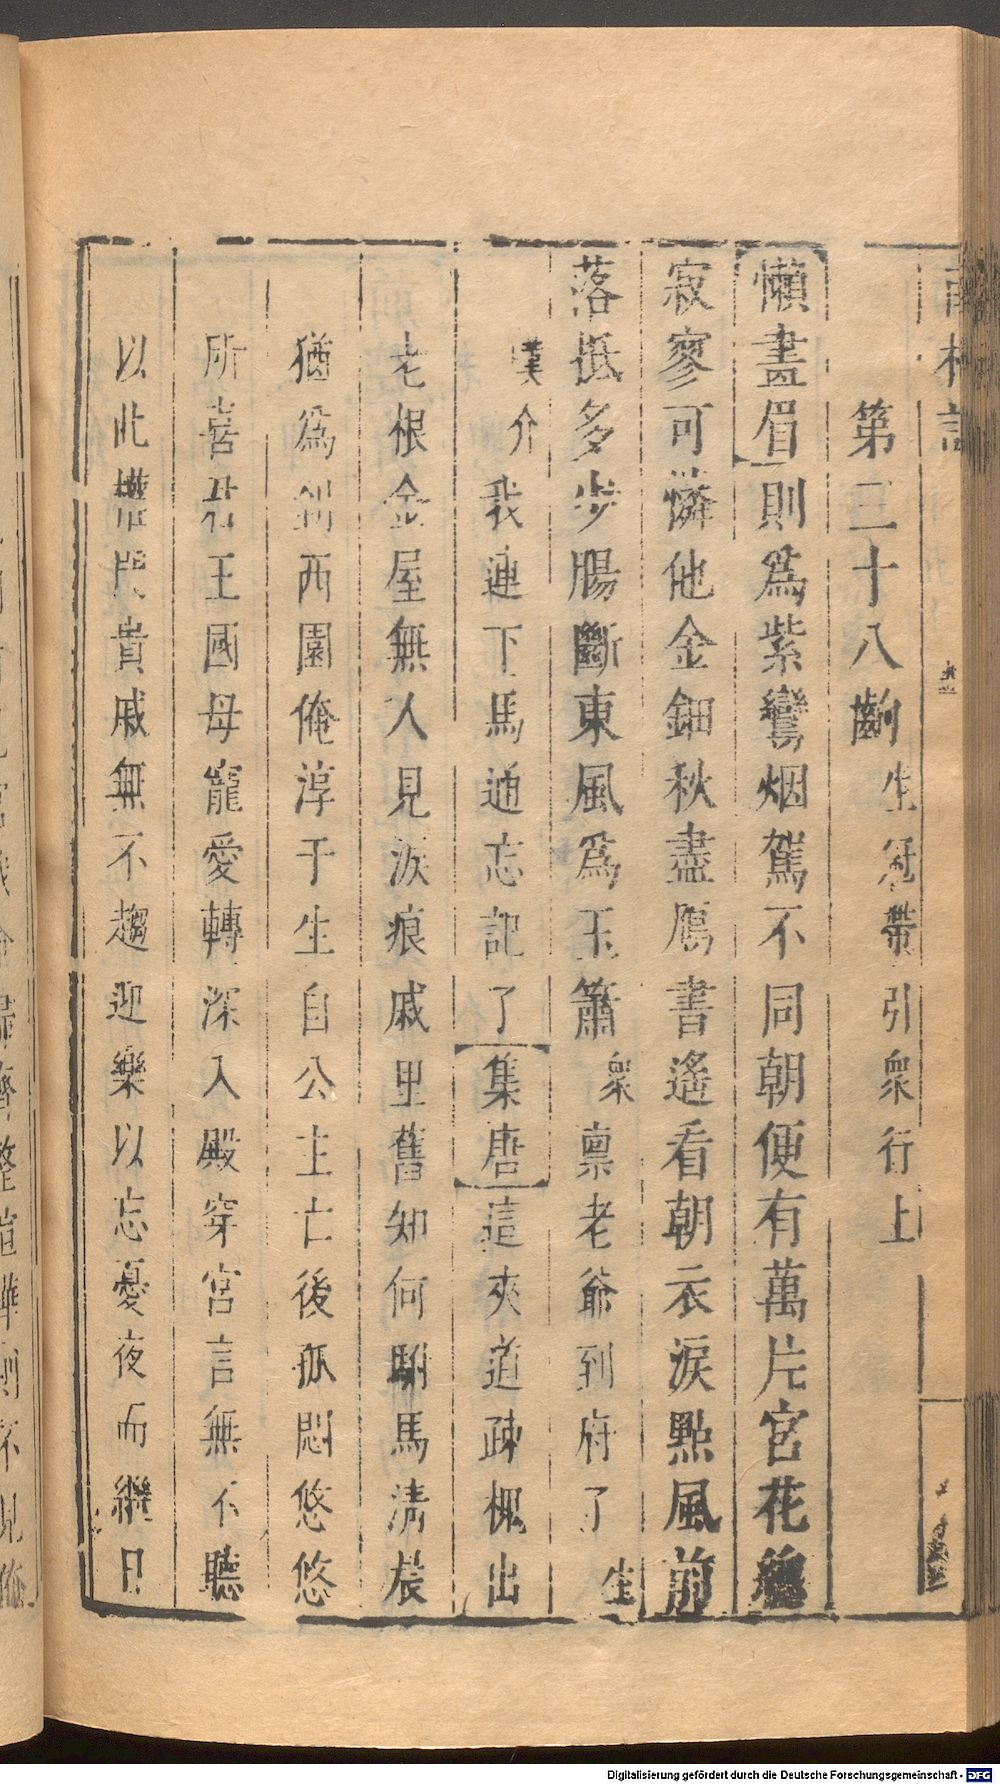 南柯記
第三十八齣 生冠帶引衆行上
懶畫眉 則爲紫鸞烟駕不同朝便有萬片宮花總
寂寥可憐他金鈿秋盡鴈書遙看朝衣淚點風前
落抵多少腸斷東風爲玉簫 衆 禀老爺到府了 生
嘆介 我連下馬通忘記了 集唐 這夾道疎槐出
老根金屋無人見淚痕戚里舊知何駙馬淸晨
猶爲到西園俺淳于生自公主亡後孤悶悠悠
所喜君王國母寵愛轉深入殿穿宮言無不聽
以此權門貴戚無不趨迎樂以忘憂夜而繼日
Digitalisierung gefördert durch die Deutsche Forschungsgemeinschaft - DFG